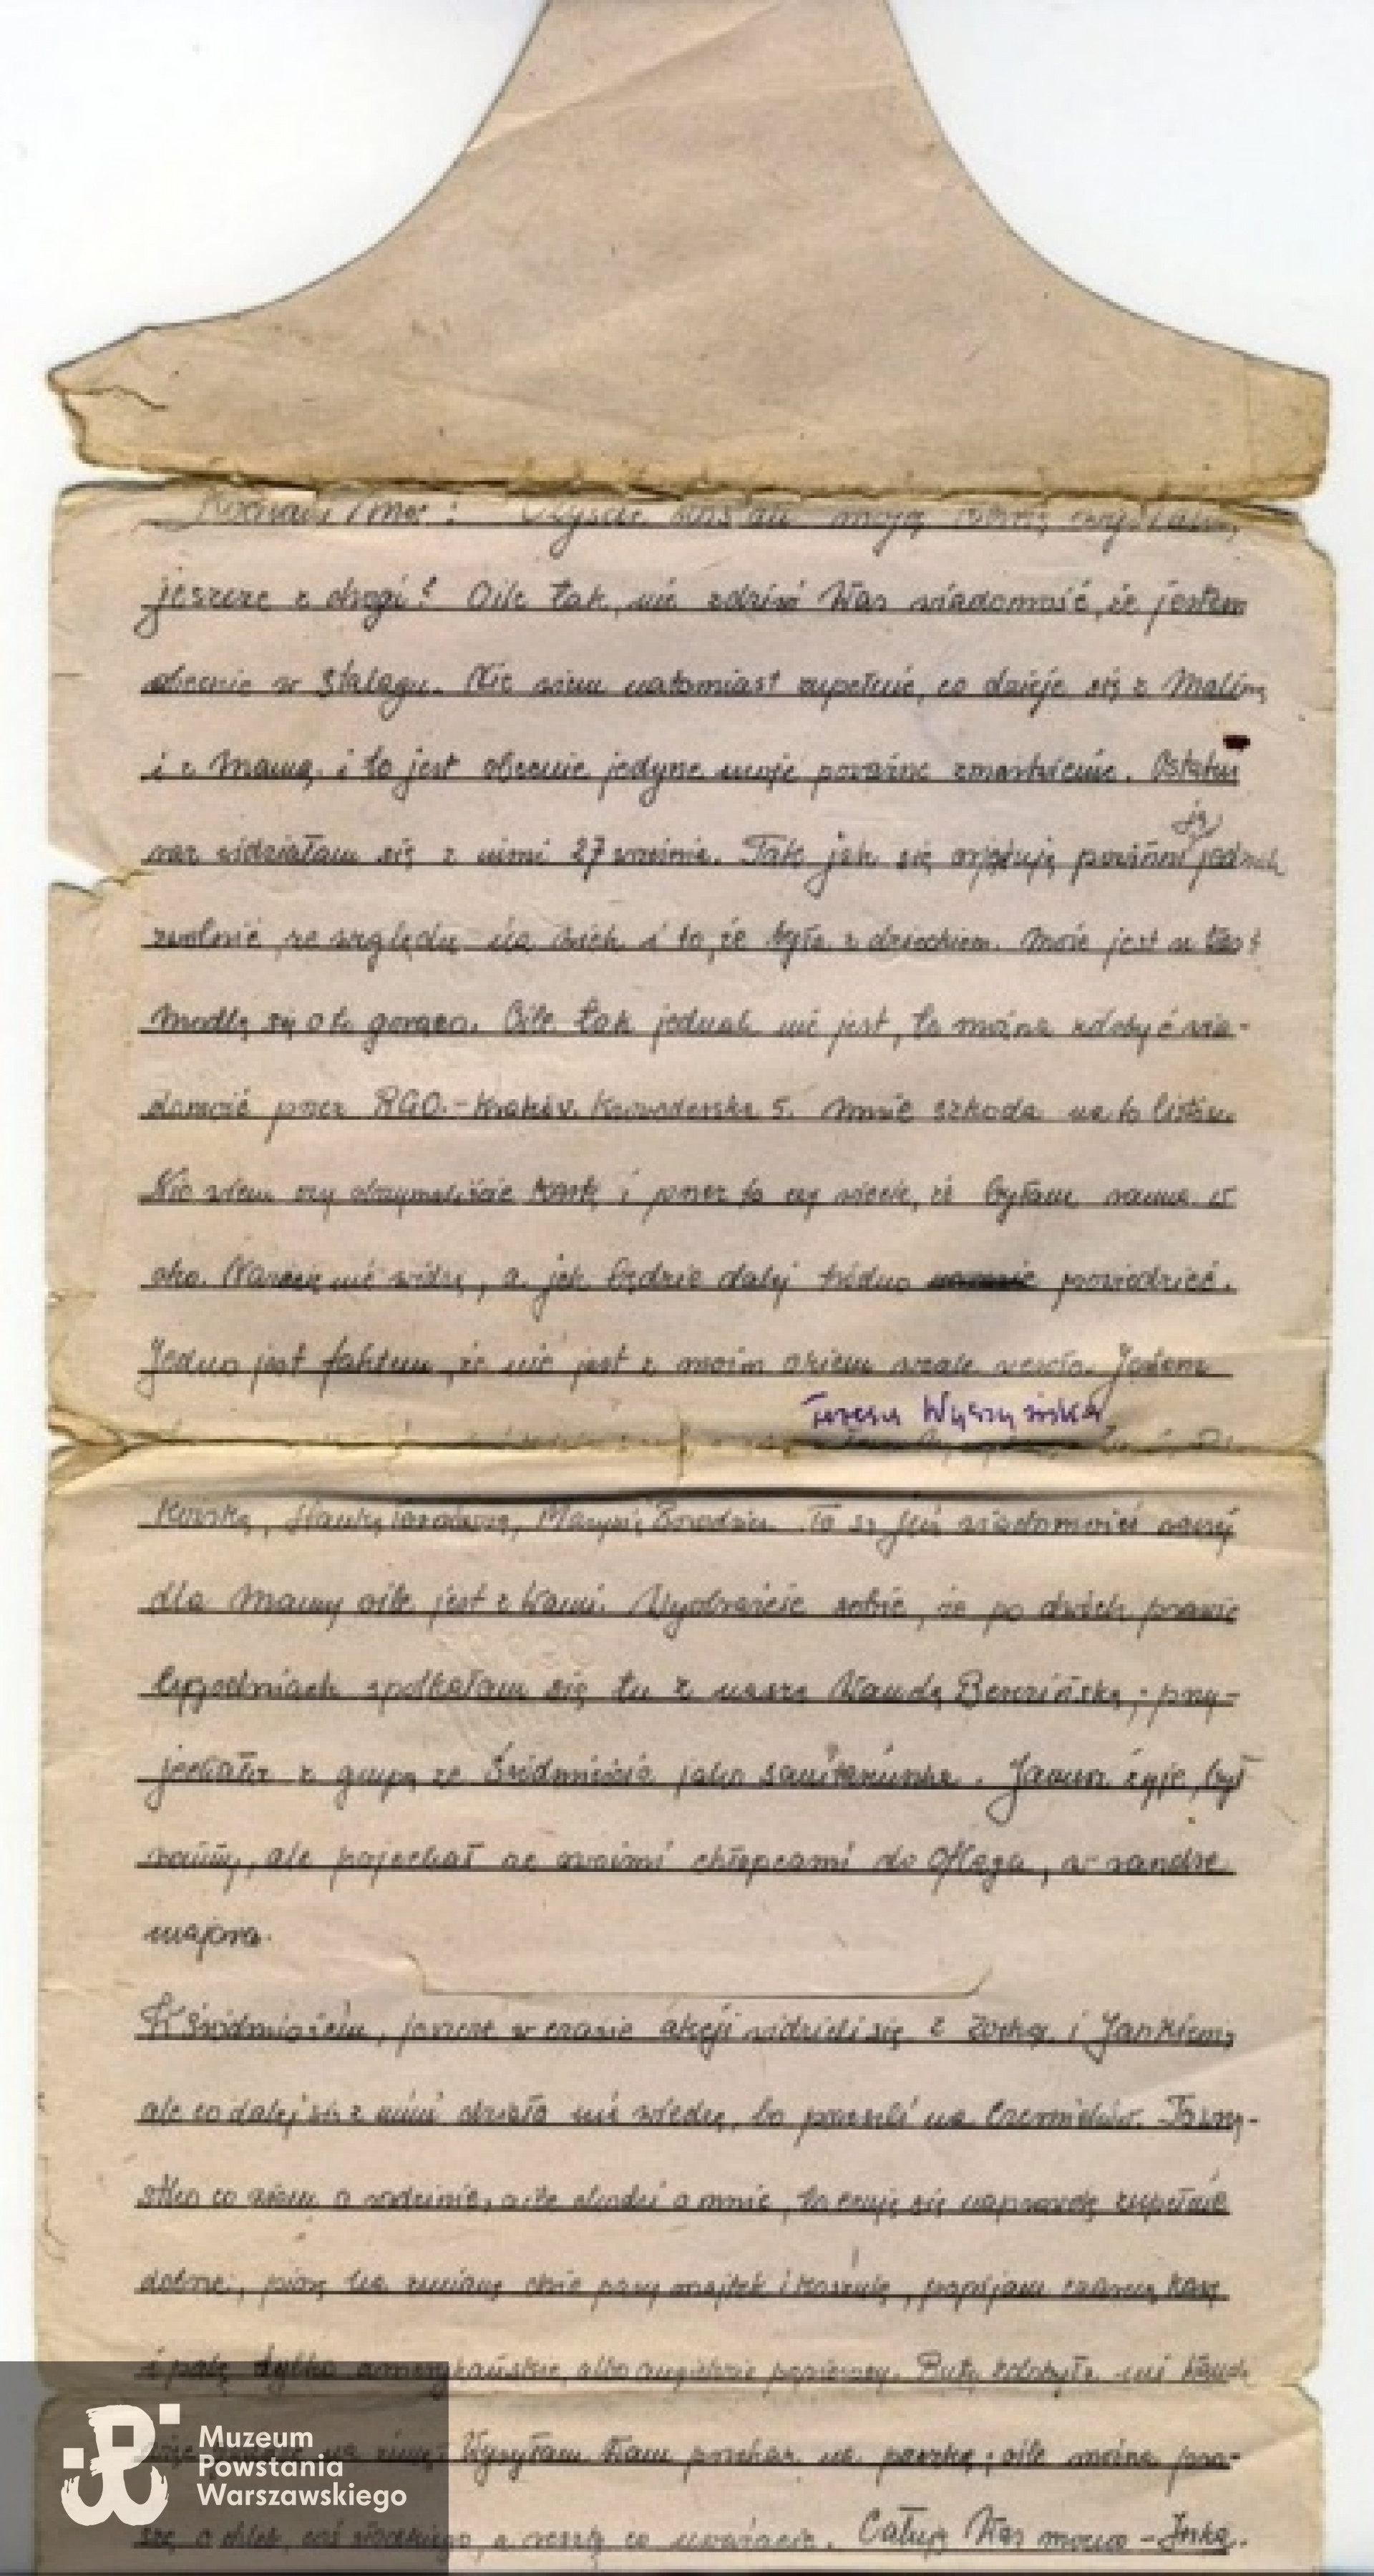 Kochani moi! Czyście dostali moją kartkę wysłaną
jeszcze z drogi? Oile tak, nie zdziwi Was wiadomość, że jestem
obecnie w Stalagu. Nic wiem natomiast zupełnie, co dzieje się z Maliną
i z Mamą, i to jest obecnie jedyne moje poważne zmartwienie. Ostatni
raz widziałam się z nimi 27 września. Tak jak się orjętuję powinni ją jednak
zwolnić ze względu na wiek i to, że była z dzieckiem. Może jest u Was?
Modlę się o to gorąco. Oile tak jednak nie jest, to można zdobyć wia-
domość przez RGO.-Kraków. Krowoderska 5. Mnie szkoda na to listów.
Nie wiem czy otrzymaliście kartkę i przez to czy wiecie, że byłam ranna w
oko. Narazie nie widzę, a jak będzie dalej trudno powiedzieć.
Jedno jest faktem, że nie jest z moim okiem wcale wesoło. Jestem
Teresa Wyszyńska
Hanką Marysią To są już wiadomości raczej
dla Mamy oile jest z Wami. Wyobraźcie sobie, że po dwóch prawie
tygodniach spotkałam się tu z naszą Wandą Berezińską; przy-
jechała z grupą ze Śródmieścia jako sanitariuszka. Janusz żyje, był
ranny, ale pojechał ze swoimi chłopcami do Oflagu, w randze
majora.
W Śródmieściu, jeszcze w czasie akcji widzieli się z Zośką i Jankiem,
ale co dalej się z nimi działo nie wiedzą, bo przeszli na Czerniaków. To wszy-
stko co wiem o rodzinie, oile chodzi o mnie, to czuję się naprawdę zupełnie
dobrze, piorę na zmianę dwie pary majtek i koszulę, popijam czarną kawę
i palę tylko amerykańskie, albo angielskie papierosy. Buty zdobyła mi Wanda
na zimę. Wysyłam Wam przekaz na paczkę; oile można pro-
szę o chleb, coś słodkiego, a resztę co uważacie. Całuję Was mocno - Inka.
Muzeum
Powstania
Warszawskiego